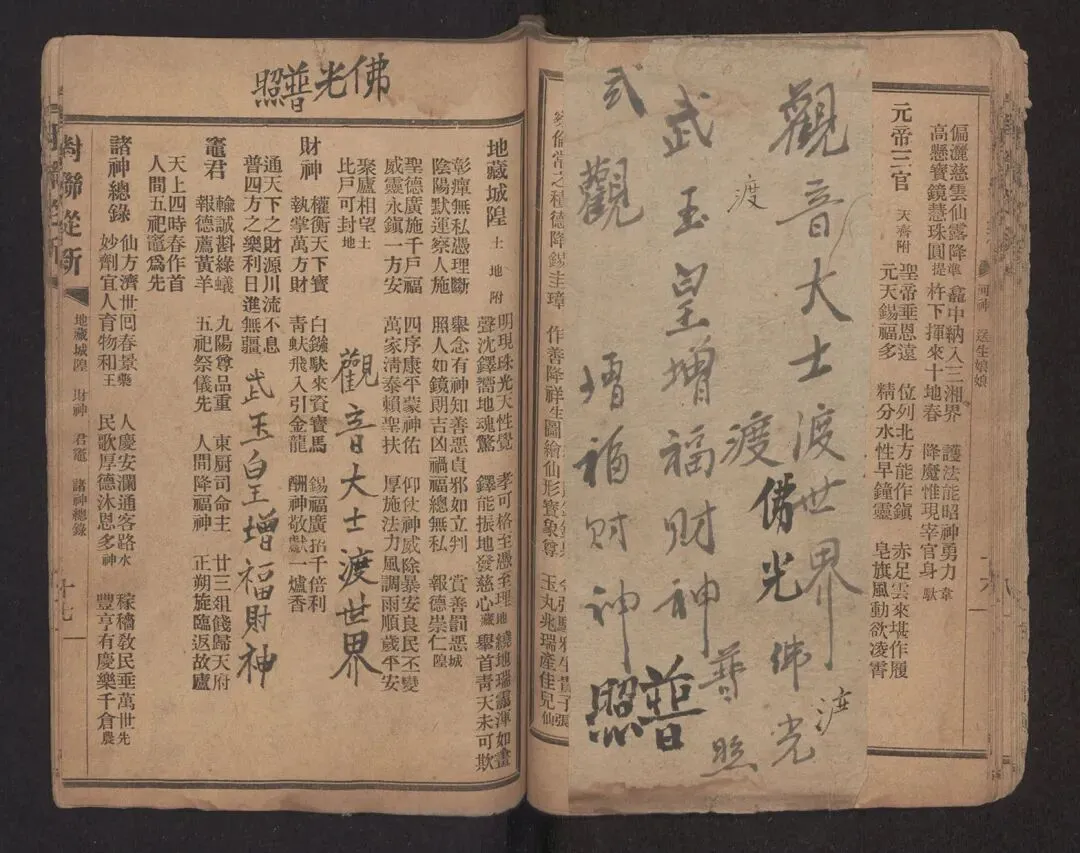 偏灑慈雲仙露降準
高懸寶鏡慧珠圓提
龕中納入三湘界
杵下揮來十地春
護法能昭神勇力韋
降魔惟現宰官身馱
元帝三官
天齊附
聖帝垂恩遠
元天錫福多
位列北方能作鎮
精分水性早鐘靈
赤足雲來堪作履
皂旗風動欲凌霄
送生娘娘
觀音大士渡世界
渡
渡
佛光
佛光
渡
武玉皇增福財神
普照
武
觀
增福財神
普照
之種德降錫圭璋
作善降祥生
圖繪仙形寶象尊
玉丸兆瑞產佳兒仙
佛光普照
地藏城隍
土地附
彰癉無私憑理斷
陰陽默運察人施
舉念有神知善惡
照人如鏡朗吉凶
貞邪如立判
禍福總無私
賞善罰惡城
報德崇仁隍
明現珠光天性覺
聲沈鐸嚮地魂驚
孝可格至憑至理地
鐸能振地發慈心藏
繞地瑞靄渾如畫
舉首靑天未可欺
聖德廣施千戶福
威靈永鎭一方安
四序康平蒙神佑
萬家淸泰賴聖扶
仰仗神威除暴安良民丕變
厚施法力風調雨順歲平安
聚廬相望土
比戶可封地
觀音大士渡世界
財神
權衡天下寶
執掌萬方財
白鏹駃來資寶馬
靑蚨飛入引金龍
錫福廣招千倍利
酬神敬獻一爐香
通天下之財源川流不息
普四方之樂利日進無疆
武玉皇增福財神
竈君
輸誠斟綠蟻
報德薦黃羊
九陽尊品重
五祀祭儀先
東厨司命主
人間降福神
廿三俎餞歸天府
正朔旋臨返故廬
天上四時春作首
人間五祀竈爲先
諸神總錄
仙方濟世回春景藥
妙劑宜人育物和王
人慶安瀾通客路水
民歌厚德沐恩多神
稼穡敎民垂萬世先
豐亨有慶樂千倉農
對聯從新
地藏城隍
財神
君竈
諸神總錄
十七